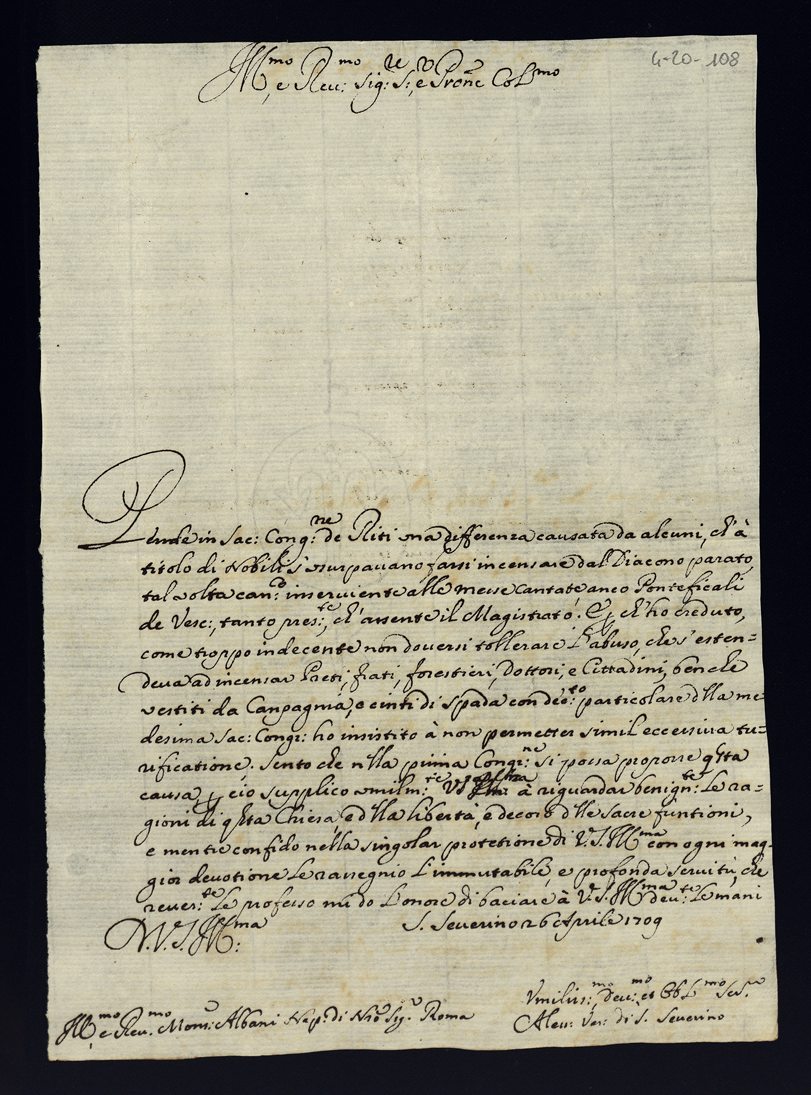 4-20-108
Ill.mo e Reu:mo Sig:re S:, e Prone Col.mo
Pende in Sac: Cong:ne de Riti una differenza causata da alcuni, ch'à
titolo di Nobili s'usurpauano farsi incensare dal Diacono parato,
tal uolta can:co inseruiente alle messe cantate anco Ponteficali
de Vesc:, tanto pres:te, ch'assente il Magistrato. E ch'ho creduto,
come troppo indecente non douersi tollerare l'abuso, che s'esten=
deua ad incensar Preti, frati, forestieri, Dottori, e Cittadini, benche
uestiti da Canpagnia, e cinti di spada con deo:to particolare dlla me
desima Sac: Congr: ho insistito à non permetter simil eccessiua tu-
rificatione. Sento che nlla prima Congr:ne si possa proporre qsta
causa, ciò supplico umilm:te VS à riguardar benign:te le ra=
gioni di qsta Chiesa, e dlla libertà, e decoro dlle sacre funtioni,
e mentre confido nella singolar protetione di V.S. Ill:ma con ogni mag-
gior deuotione le rassegnio l'immutabile, e profonda seruitù, che
reuer:te le professo mi do l'onore di baciare à V.S. Ill:ma deu:te le mani
D. V. S. Ill:ma
S. Seuerino 26 Aprile 1709
Vmiliss:mo, Deu:mo et Obl.mo Ser.
Ill.mo e Reu.mo Mons: Albani Nep: di Nro Sig.re Roma
Aless: Ves: di S. Seuerino